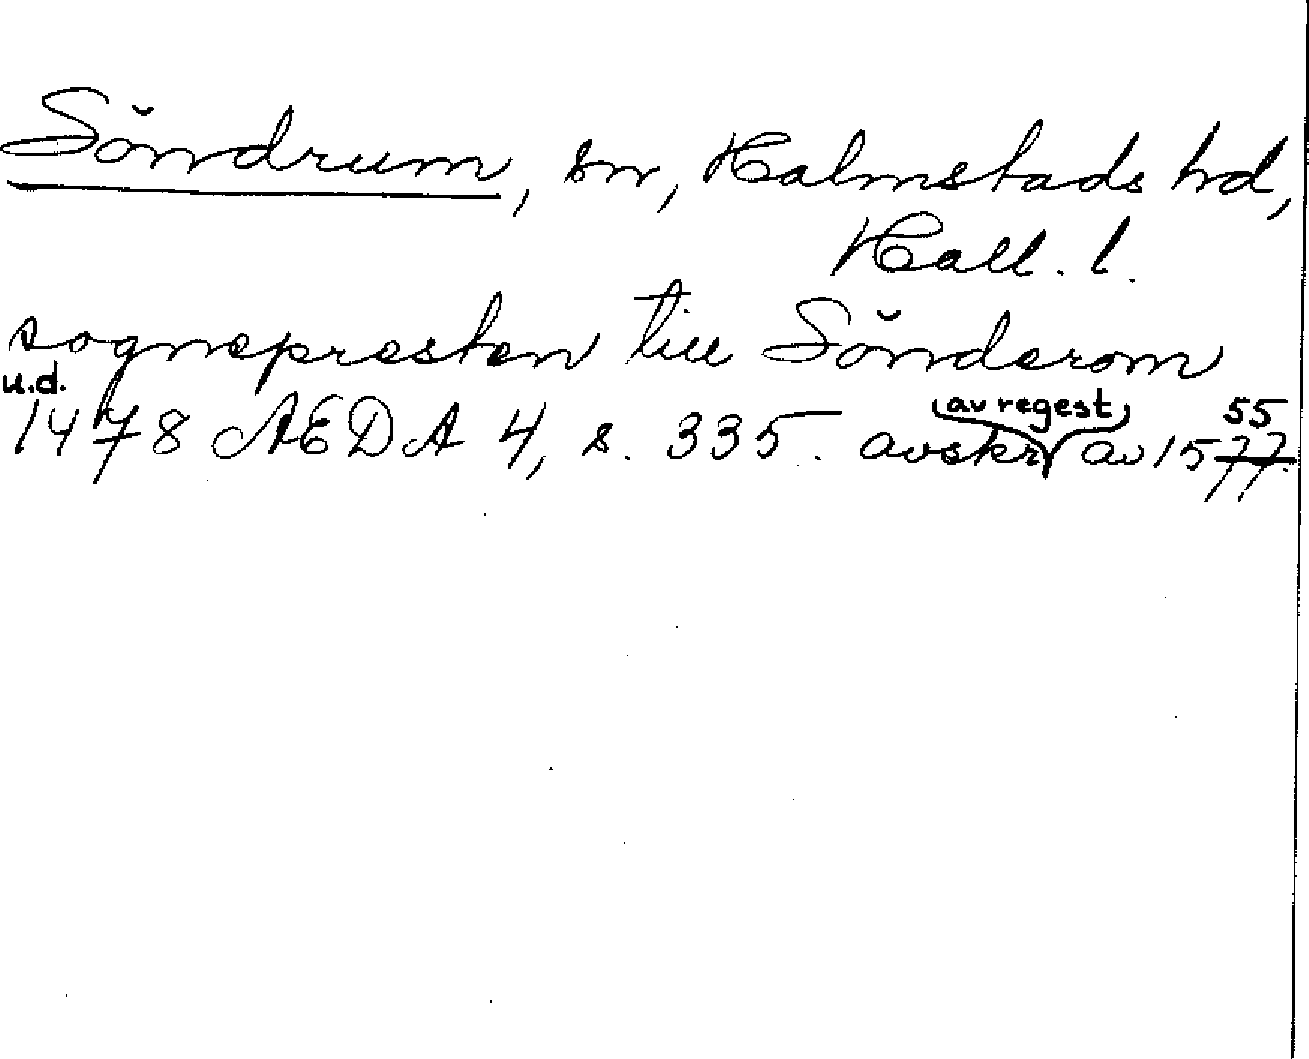 Söndrum, sn, Halmstads hd,
Hall. l.
sognepresten till Sönderom
u.d.
1478 AEDA 4, s. 335. avskr (av regest) av 1577
55